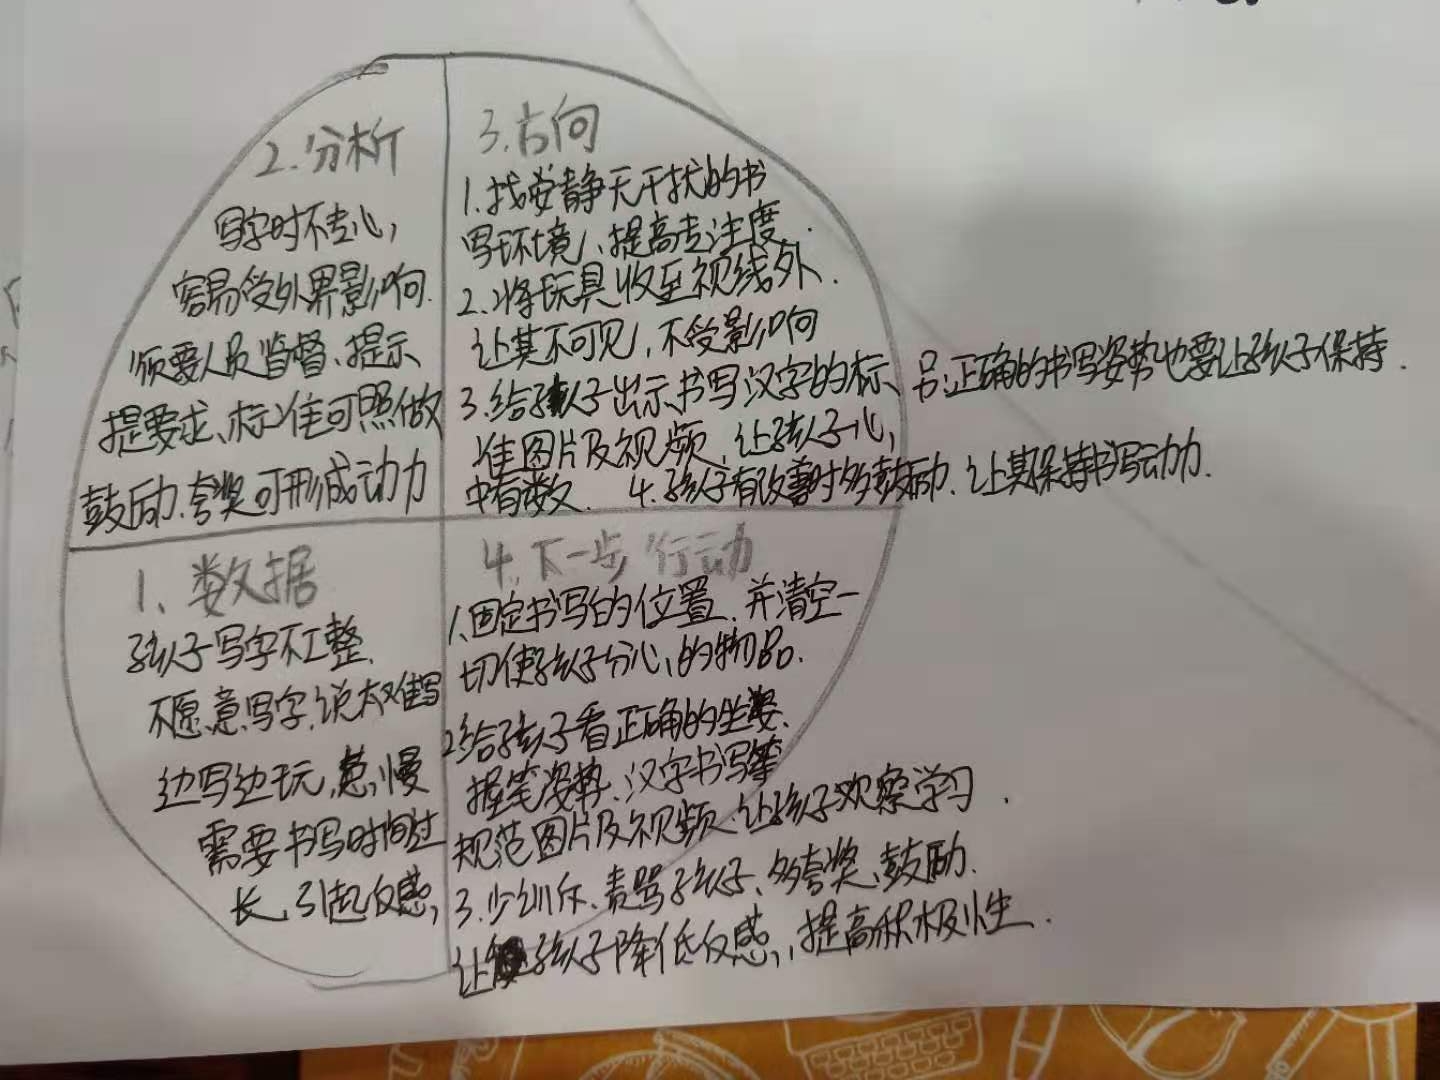 2.分析
写字时不专心,
容易受外界影响.
须要人员监督、提示
提要求、标准可照做
鼓励.夸奖可形成动力
3.方向
1.找安静无干扰的书
写环境,提高专注度.
2.将玩具收至视线外.
让其不可见,不受影响
3.给孩子出示书写汉字的标
准图片及视频,让孩子心
中有数. 4.孩子有改善时多鼓励.让其保持书写动力.
另:正确的书写姿势也要让孩子保持.
1、数据
孩子写字不工整.
不愿意写字,说太难写
边写边玩,怠慢
需要书写时间过
长,引起反感,
4.下一步行动
1.固定书写的位置.并清空一
切使孩子分心的物品.
2.给孩子看正确的坐姿、
握笔姿势、汉字书写等
规范图片及视频.让孩子观察学习.
3.少训斥、责骂孩子、多夸奖、鼓励.
让孩子降低反感,提高积极性.